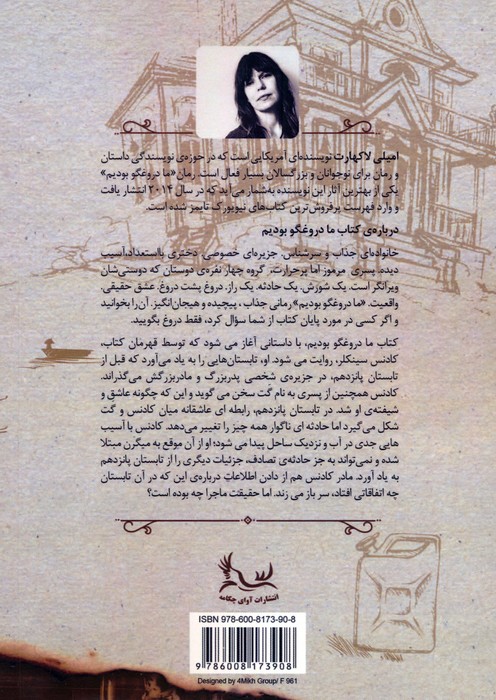 امیلی لاکهارت نویسنده‌ای آمریکایی است که در حوزه‌ی نویسندگی داستان
و رمان برای نوجوانان و بزرگسالان بسیار فعال است. رمان«ما دروغگو بودیم»
یکی از بهترین آثار این نویسنده به‌شمار می‌آید که در سال ۲۰۱۴ انتشار یافت
و وارد فهرست پرفروش‌ترین کتاب‌های نیویورک تایمز شده است.
درباره‌ی کتاب ما دروغگو بودیم
خانواده‌ای جذاب و سرشناس. جزیره‌ای خصوصی. دختری بااستعداد،آسیب
دیده. پسری مرموز اما پرحرارت. گروه چهار نفره‌ی دوستان که دوستی‌شان
ویرانگر است. یک شورش. یک حادثه. یک راز. دروغ پشت دروغ. عشق حقیقی.
واقعیت. «ما دروغگو بودیم» رمانی جذاب ، پیچیده و هیجان‌انگیز. آن‌را بخوانید
و اگر کسی در مورد پایان کتاب از شما سؤال کرد، فقط دروغ بگویید.
کتاب ما دروغگو بودیم، با داستانی آغاز می شود که توسط قهرمان کتاب،
کادنس سینکلر، روایت می شود. او، تابستان‌هایی را به یاد می‌آورد که قبل از
تابستان پانزدهم، در جزیره‌ی شخصی پدربزرگ و مادربزرگش می‌گذراند.
کادنس همچنین از پسری به نام گت سخن می گوید و این که چگونه عاشق و
شیفته‌ی او شد. در تابستان پانزدهم، رابطه ای عاشقانه میان کادنس و گت
شکل می‌گیرد اما حادثه ای ناگوار همه چیز را تغییر می‌دهد. کادنس با آسیب
هایی جدی در آب و نزدیک ساحل پیدا می شود؛ او از آن موقع به میگرن مبتلا
شده و نمی‌تواند به جز حادثه‌ی تصادف، جزئیات دیگری را از تابستان پانزدهم
به یاد آورد. مادر کادنس هم از دادن اطلاعات درباره‌ی این که در آن تابستان
چه اتفاقاتی افتاد، سر باز می زند. اما حقیقت ماجرا چه بوده است؟
انتشارات آوای چکامه
ISBN 978-600-8173-90-8
9 786008 173908
Designed by 4Mikh Group/ F 961